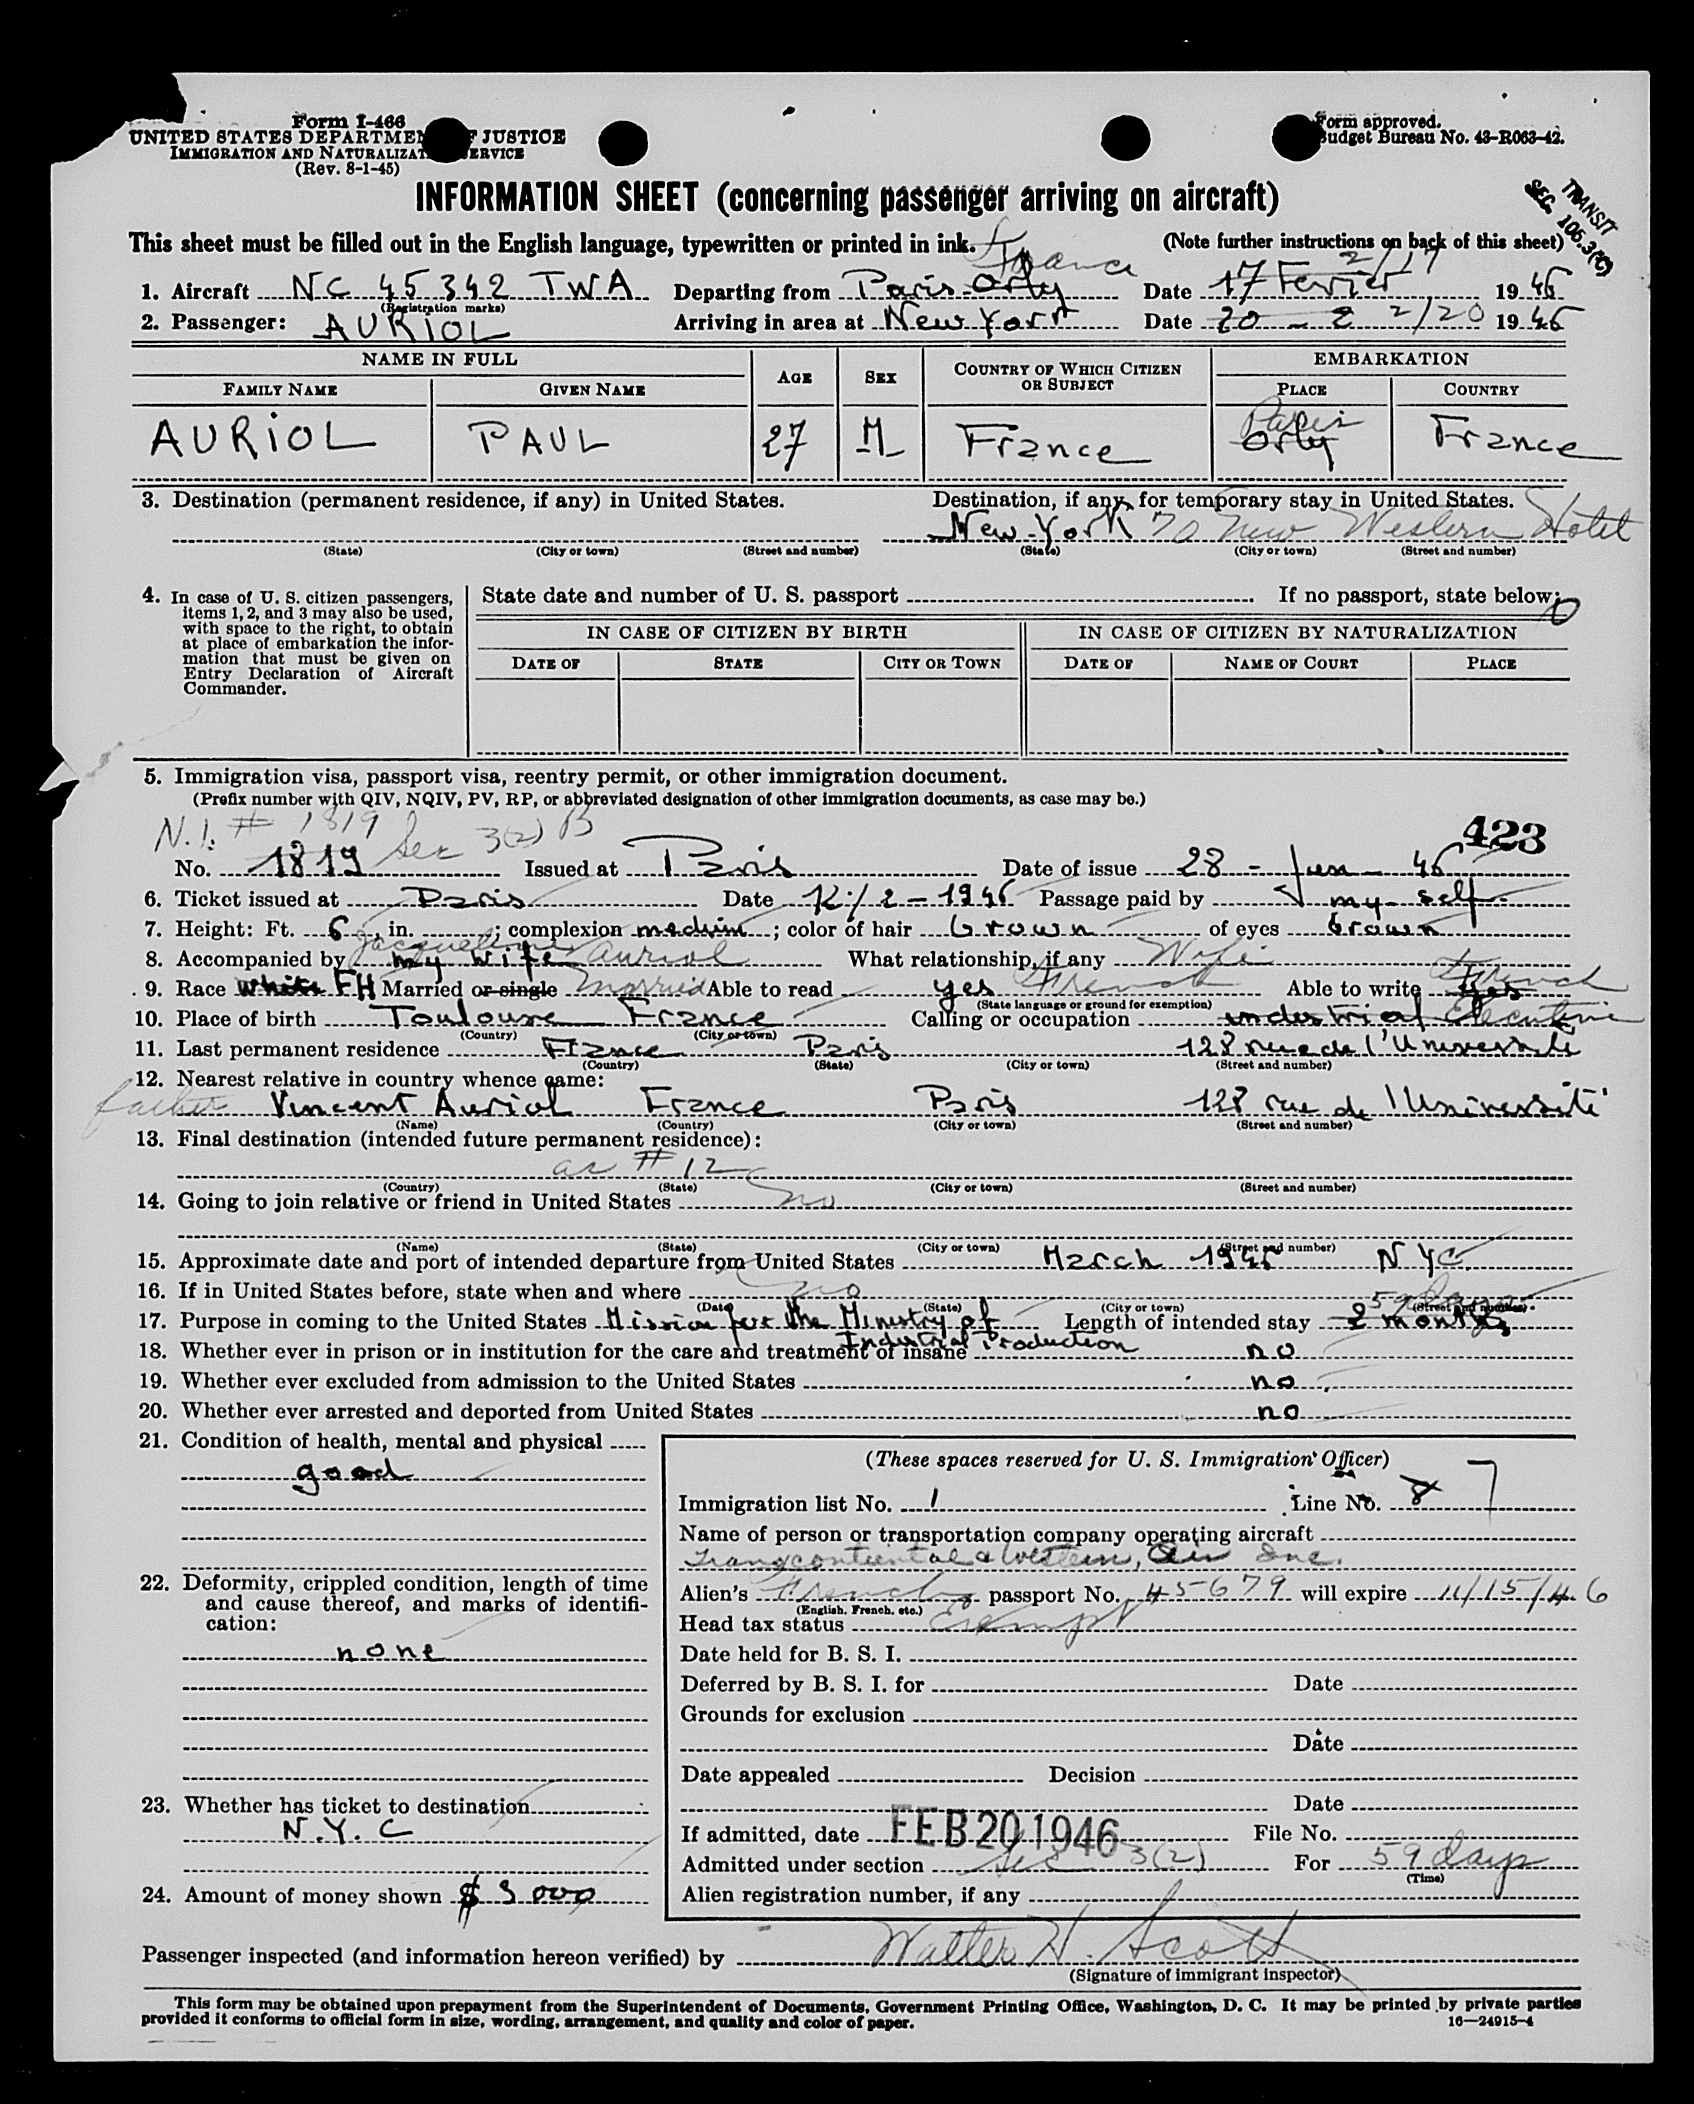 Form I-466
UNITED STATES DEPARTMENT OF JUSTICE
IMMIGRATION AND NATURALIZATION SERVICE
(Rev. 8-1-45)
Form approved.
Budget Bureau No. 43-R063-42.
INFORMATION SHEET (concerning passenger arriving on aircraft)
TRANSIT
SEC. 105.3(c)
This sheet must be filled out in the English language, typewritten or printed in ink. (Note further instructions on back of this sheet)
France 2/17
1. Aircraft NC 45342 TWA Departing from Paris-Orly Date 17 Fevrier 1946
(Registration marks)
2. Passenger: AURIOL Arriving in area at New York Date 20-2 2/20 1946
NAME IN FULL AGE SEX COUNTRY OF WHICH CITIZEN OR SUBJECT EMBARKATION
FAMILY NAME GIVEN NAME PLACE COUNTRY
Paris
AURIOL PAUL 27 M France Orly France
3. Destination (permanent residence, if any) in United States. Destination, if any, for temporary stay in United States.
New-York % New Western Hotel
(State) (City or town) (Street and number) (State) (City or town) (Street and number)
4. In case of U. S. citizen passengers, items 1, 2, and 3 may also be used, with space to the right, to obtain at place of embarkation the information that must be given on Entry Declaration of Aircraft Commander.
State date and number of U. S. passport If no passport, state below: 0
IN CASE OF CITIZEN BY BIRTH IN CASE OF CITIZEN BY NATURALIZATION
DATE OF STATE CITY OR TOWN DATE OF NAME OF COURT PLACE
5. Immigration visa, passport visa, reentry permit, or other immigration document.
(Prefix number with QIV, NQIV, PV, RP, or abbreviated designation of other immigration documents, as case may be.)
N.I. # 1819 Sec 3(2) B 423
No. 1819 Issued at Paris Date of issue 28-Jan-46
6. Ticket issued at Paris Date 12/2-1946 Passage paid by my self
7. Height: Ft. 6, in. ; complexion medium; color of hair brown of eyes brown
8. Accompanied by my wife Jacqueline Auriol What relationship, if any Wife
9. Race White FH Married or single Married Able to read yes French Able to write yes French
(State language or ground for exemption)
10. Place of birth Toulouse France Calling or occupation industrial Executive
(Country) (City or town)
11. Last permanent residence France Paris 128 rue de l'Université
(Country) (State) (City or town) (Street and number)
12. Nearest relative in country whence came:
father Vincent Auriol France Paris 128 rue de l'Université
(Name) (Country) (City or town) (Street and number)
13. Final destination (intended future permanent residence):
as # 12
(Country) (State) (City or town) (Street and number)
14. Going to join relative or friend in United States no
(Name) (State) (City or town) (Street and number)
15. Approximate date and port of intended departure from United States March 1946 NYC
16. If in United States before, state when and where no
(Date) (State) (City or town) (Street and number)
59 days
17. Purpose in coming to the United States Mission for the Ministry of Industrial Production Length of intended stay 2 months
18. Whether ever in prison or in institution for the care and treatment of insane no
19. Whether ever excluded from admission to the United States no
20. Whether ever arrested and deported from United States no
21. Condition of health, mental and physical
good
22. Deformity, crippled condition, length of time and cause thereof, and marks of identification:
none
23. Whether has ticket to destination
N.Y.C
24. Amount of money shown $ 3000
(These spaces reserved for U. S. Immigration Officer)
Immigration list No. 1 Line No. 8 7
Name of person or transportation company operating aircraft
Transcontinental & Western, Air Inc.
Alien's French passport No. 45679 will expire 11/15/46
(English, French, etc.)
Head tax status Exempt
Date held for B. S. I.
Deferred by B. S. I. for Date
Grounds for exclusion
Date
Date appealed Decision
Date
If admitted, date FEB 20 1946 File No.
Admitted under section Sec 3(2) For 59 days
(Time)
Alien registration number, if any
Passenger inspected (and information hereon verified) by Walter H. Scott
(Signature of immigrant inspector)
This form may be obtained upon prepayment from the Superintendent of Documents, Government Printing Office, Washington, D. C. It may be printed by private parties
provided it conforms to official form in size, wording, arrangement, and quality and color of paper. 16—24915-4